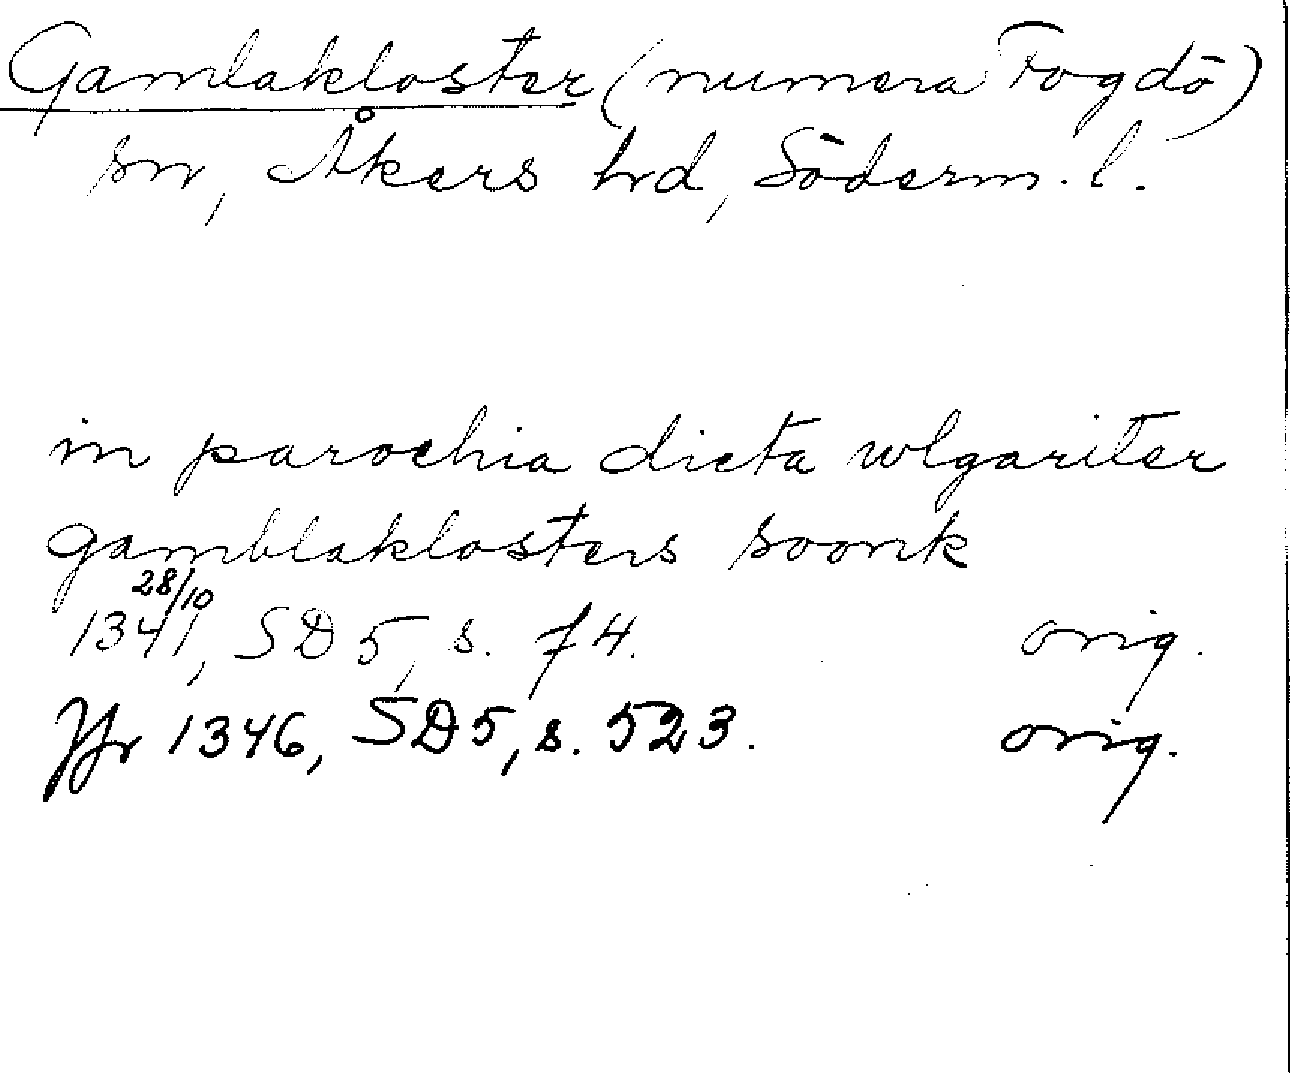 Gamlakloster (numera Fogdö)
sn, Åkers hrd, Söderm. l.
in parochia dicta wlgariter
gamblaklosters soonk
28/10
1341, SD 5, s. 74. orig.
Yr 1346, SD 5, s. 523. orig.